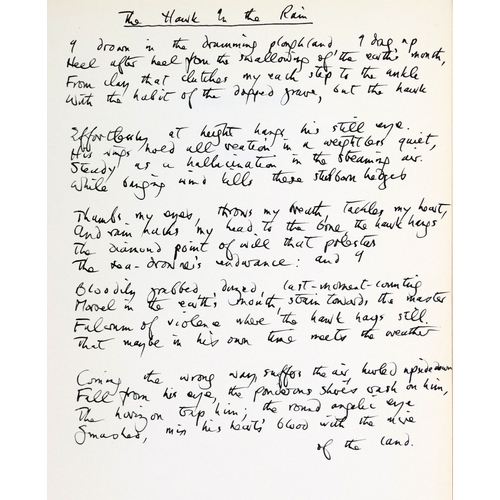 The Hawk In the Rain
I drown in the drumming ploughland I drag up
Heel after heel from the swallowing of the earth's mouth,
From clay that clutches my each step to the ankle
With the habit of the dogged grave, but the hawk
Effortlessly at height hangs his still eye.
His wings hold all creation in a weightless quiet,
Steady as a hallucination in the streaming air.
While banging wind kills these stubborn hedges
Thumbs my eyes, throws my breath, tackles my heart,
And rain hacks my head to the bone, the hawk hangs
The diamond point of will that polestars
The sea-drowner's endurance: and I
Bloodily grabbed, dazed, last-moment-counting
Morsel in the earth's mouth, strain towards the master
Fulcrum of violence where the hawk hangs still
That maybe in his own time meets the weather
Coming the wrong way, suffers the air, hurled upside down
Fall from his eye, the ponderous shires crash on him,
The horizon trap him; the round angelic eye
Smashed, mix his heart's blood with the mire
of the land.